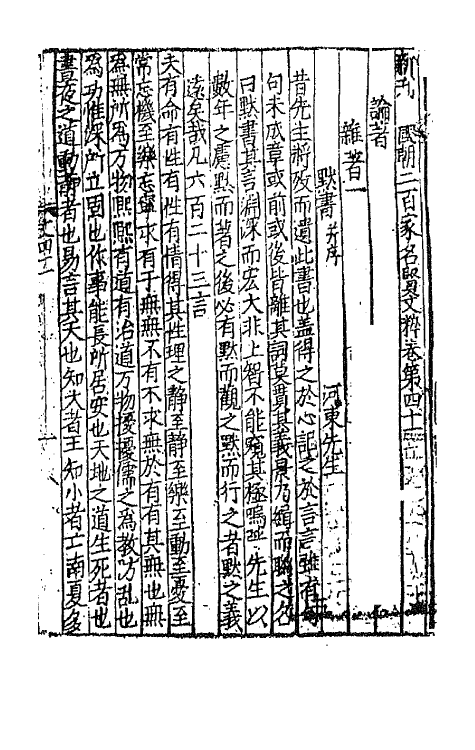 新刊國朝二百家名賢文粹卷第四十
論著
雜著一
默書并序
河東先生
昔先生將歿而遺此書也蓋得之於心記之於言言雖有
句未成章或前或後皆離其詞莫貫其義景乃緝而聯之名
曰默書其言淵深而宏大非上智不能窺其極嗚呼先生以
數年之慮默而著之後必有默而觀之默而行之者默之義
遠矣哉凡六百二十三言
夫有命有性有性有情得其性理之靜至靜至樂至動至憂至
常忘機至樂忘寧求有于無無不有不求無於有有其無也無
為無所為万物熙熙有道有治道万物擾擾儒之為教防乱也
為功惟深所立固也作事能長所居安也天地之道生死者也
晝夜之道動靜者也易言其天也知大者王知小者亡南夏多